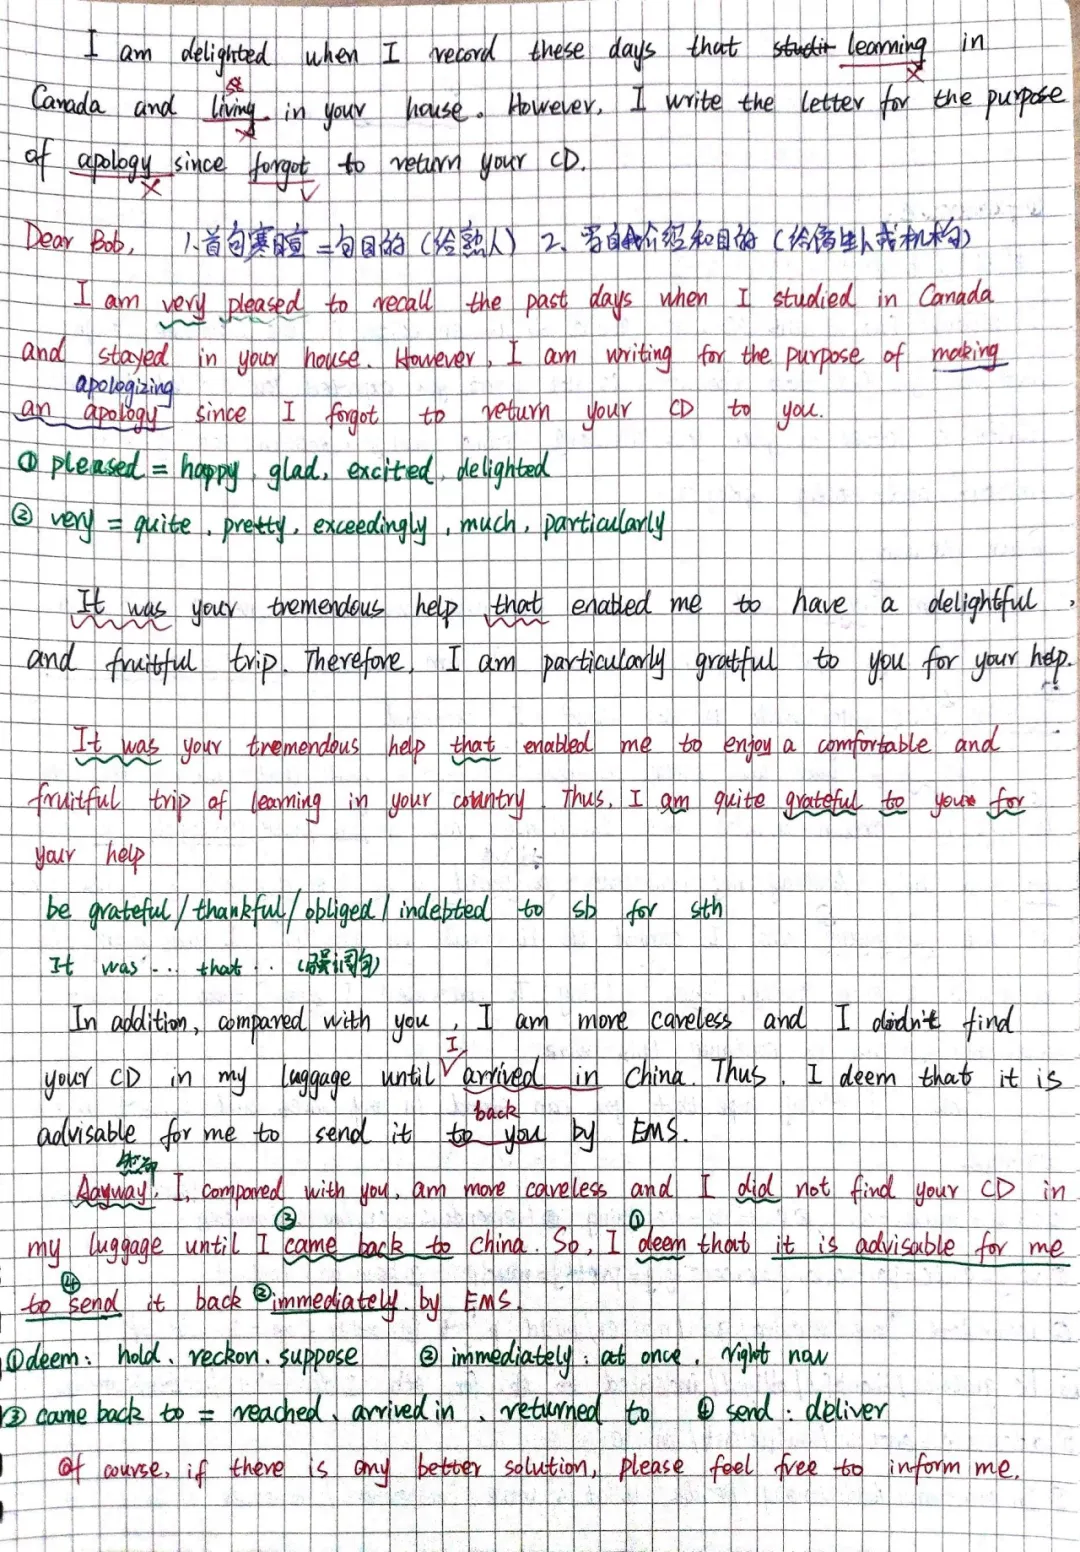 I am delighted when I record these days that studit learning in
Canada and living in your house. However, I write the letter for the purpose
of apology since forgot to return your CD.
Dear Bob, 1.首句寒暄=句目的(给熟人) 2、写自我介绍和目的(给陌生人或机构)
I am very pleased to recall the past days when I studied in Canada
and stayed in your house. However, I am writing for the purpose of making
apologizing
an apology since I forgot to return your CD to you.
① pleased = happy, glad, excited, delighted
② very = quite, pretty, exceedingly, much, particularly
It was your tremendous help that enabled me to have a delightful
and fruitful trip. Therefore, I am particularly gratful to you for your help.
It was your tremendous help that enabled me to enjoy a comfortable and
fruitful trip of learning in your country. Thus, I am quite grateful to you for
your help
be grateful/thankful/obliged/indebted to sb for sth
It was... that.. (强调句)
In addition, compared with you, I am more careless and I didn't find
I
your CD in my luggage until arrived in China. Thus, I deem that it is
back
advisable for me to send it to you by EMS.
Aayway, I, compared with you, am more careless and I did not find your CD in
③ ①
my luggage until I came back to China. So, I deem that it is advisable for me
④
to send it back ②immediately by EMS.
①deem: hold、reckon. suppose ② immediately: at once, right now
③ came back to = reached、arrived in、returned to ④ send: deliver
Of course, if there is any better solution, please feel free to inform me.